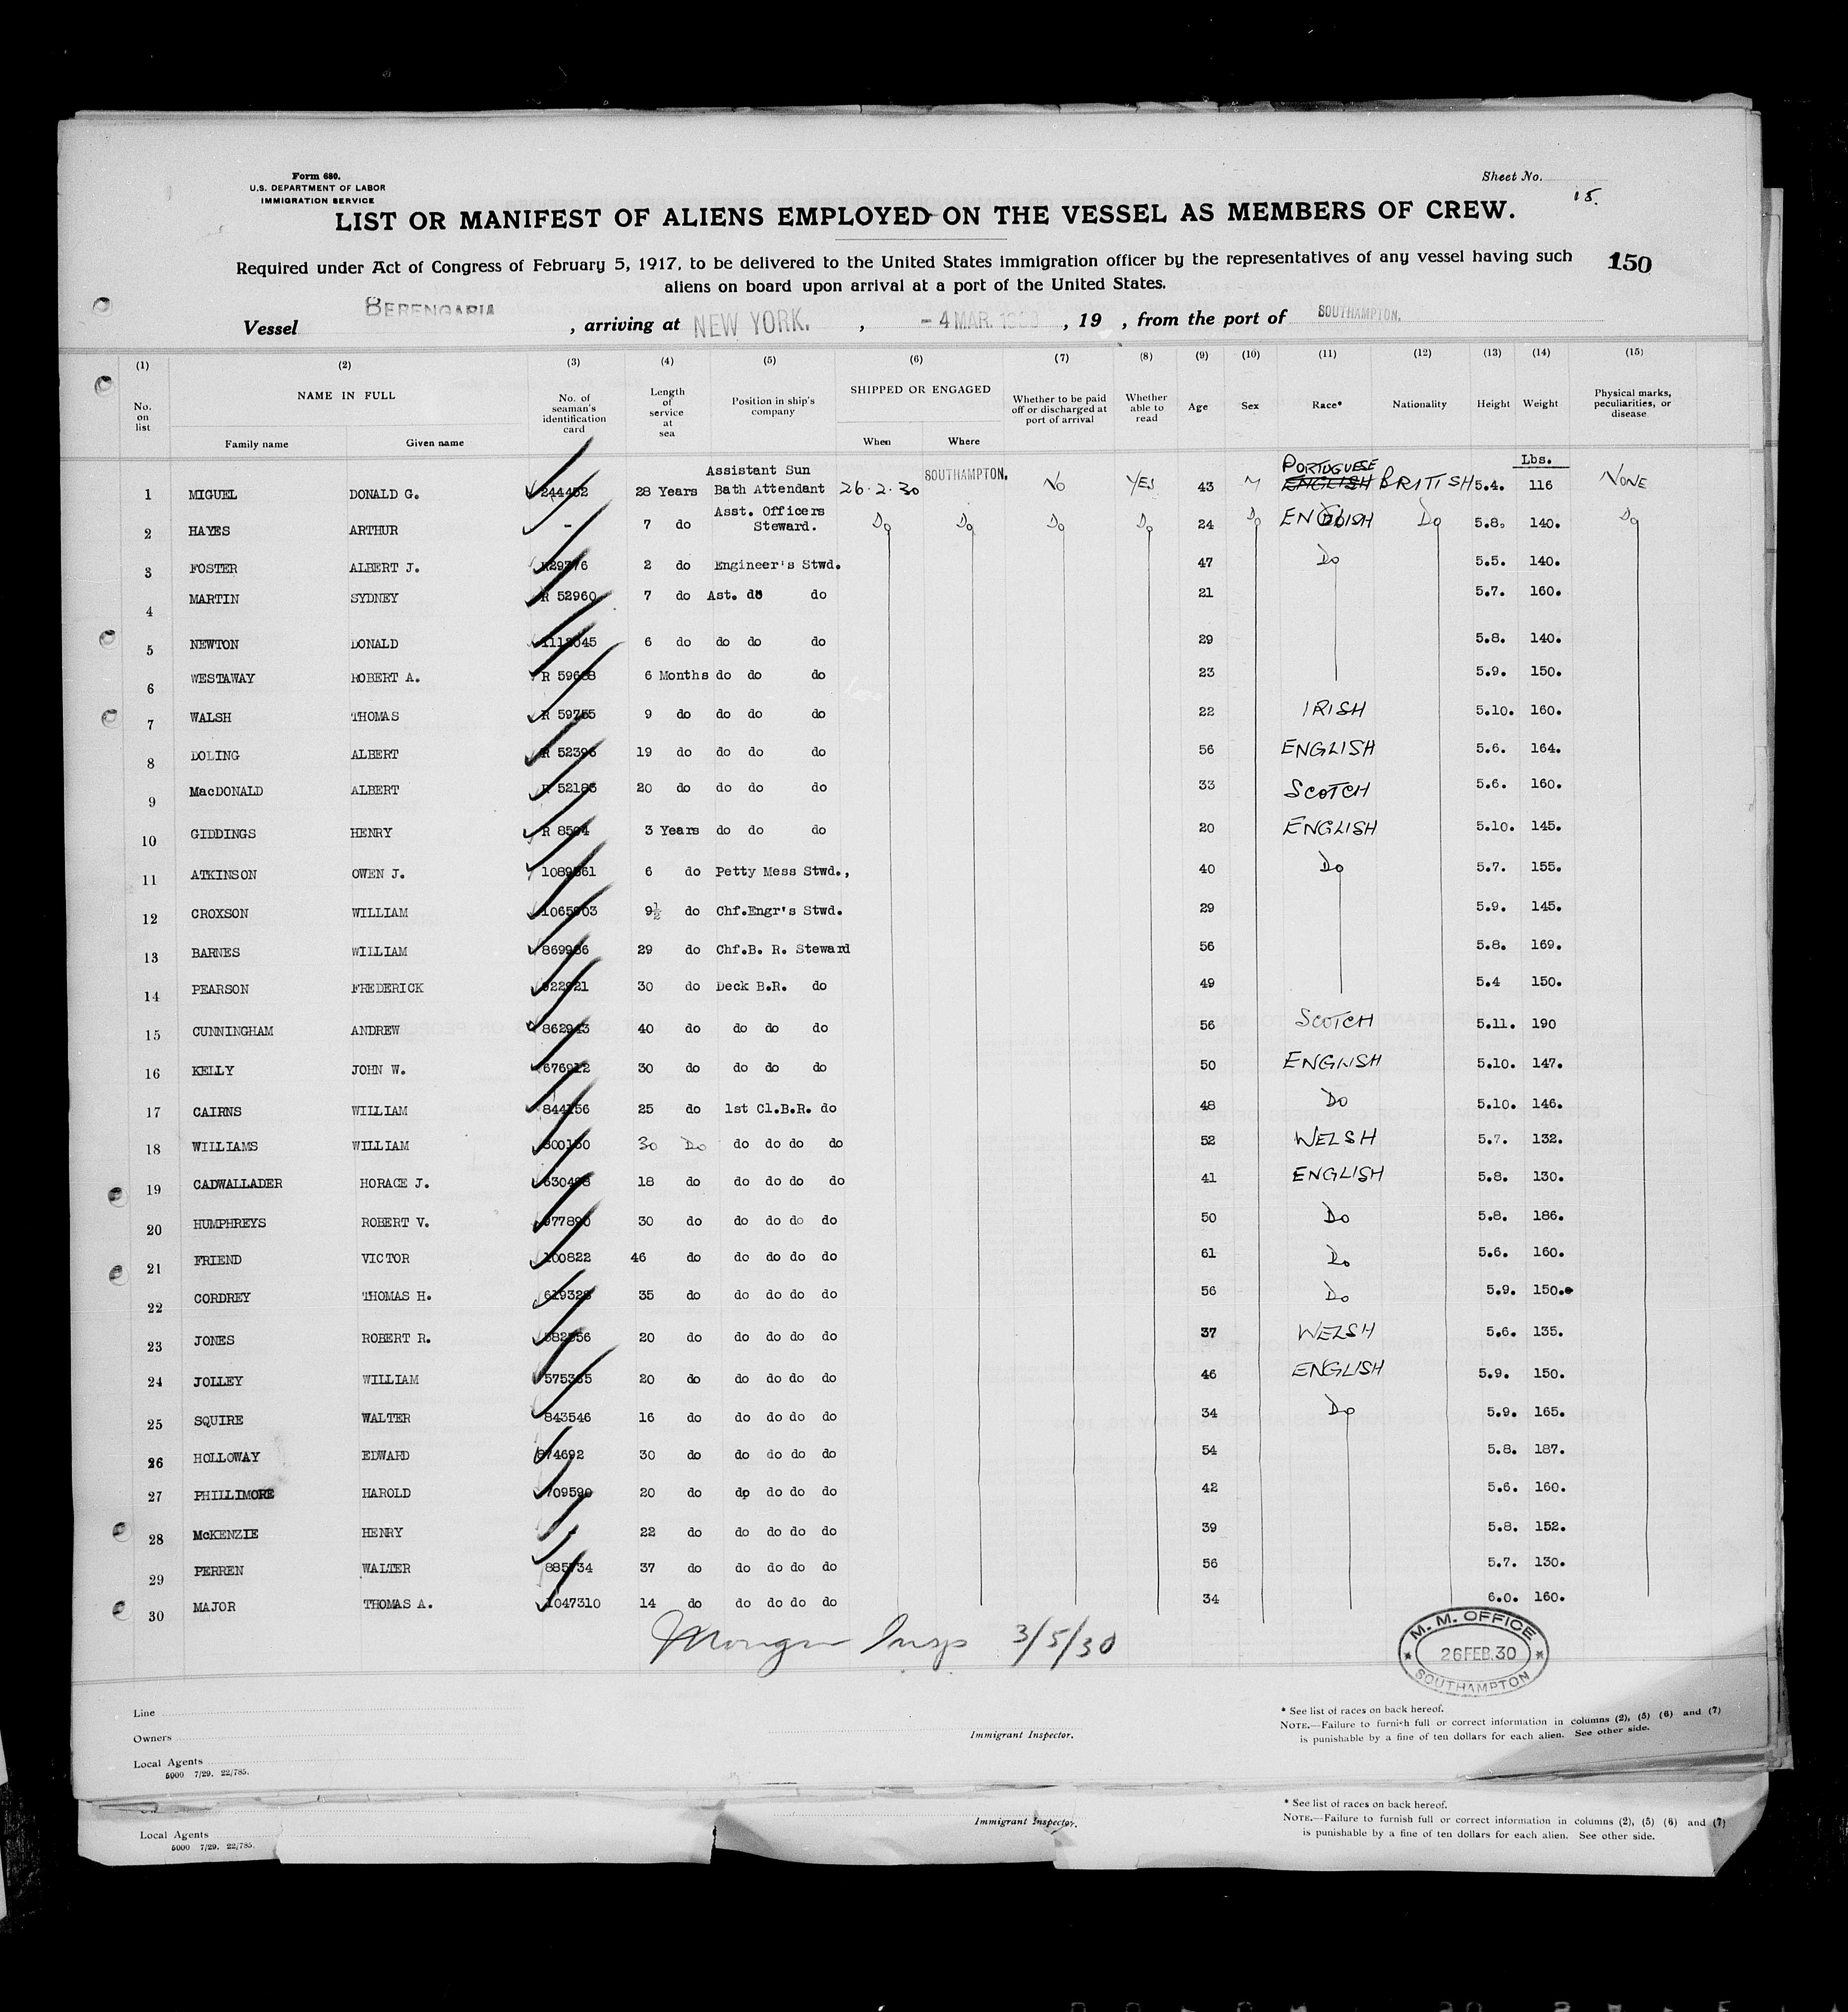 Form 680.
U.S. DEPARTMENT OF LABOR
IMMIGRATION SERVICE
Sheet No.
15.
LIST OR MANIFEST OF ALIENS EMPLOYED ON THE VESSEL AS MEMBERS OF CREW.
Required under Act of Congress of February 5, 1917, to be delivered to the United States immigration officer by the representatives of any vessel having such
150
aliens on board upon arrival at a port of the United States.
Vessel BERENGARIA, arriving at NEW YORK., - 4 MAR. 1930, 19 , from the port of SOUTHAMPTON.
(1) (2) (3) (4) (5) (6) (7) (8) (9) (10) (11) (12) (13) (14) (15)
No. on list NAME IN FULL Family name Given name No. of seaman's identification card Length of service at sea Position in ship's company SHIPPED OR ENGAGED When Where Whether to be paid off or discharged at port of arrival Whether able to read Age Sex Race* Nationality Height Weight Physical marks, peculiarities, or disease
Lbs.
1 MIGUEL DONALD G. 244452 28 Years Assistant Sun Bath Attendant 26.2.30 SOUTHAMPTON. NO YES 43 M PORTUGUESE ENGLISH BRITISH 5.4. 116 NONE
2 HAYES ARTHUR - 7 do Asst. Officers Steward. Do Do Do Do 24 Do ENGLISH Do 5.8. 140. Do
3 FOSTER ALBERT J. 2 do Engineer's Stwd. 47 Do 5.5. 140.
4 MARTIN SYDNEY R 52960 7 do Ast. do do 21 5.7. 160.
5 NEWTON DONALD 6 do do do do 29 5.8. 140.
6 WESTAWAY ROBERT A. 6 Months do do do 23 5.9. 150.
7 WALSH THOMAS R 59755 9 do do do do 22 IRISH 5.10. 160.
8 DOLING ALBERT R 52396 19 do do do do 56 ENGLISH 5.6. 164.
9 MacDONALD ALBERT 20 do do do do 33 SCOTCH 5.6. 160.
10 GIDDINGS HENRY 3 Years do do do 20 ENGLISH 5.10. 145.
11 ATKINSON OWEN J. 6 do Petty Mess Stwd., 40 Do 5.7. 155.
12 CROXSON WILLIAM 9½ do Chf.Engr's Stwd. 29 5.9. 145.
13 BARNES WILLIAM 29 do Chf.B. R. Steward 56 5.8. 169.
14 PEARSON FREDERICK 30 do Deck B.R. do 49 5.4 150.
15 CUNNINGHAM ANDREW 862943 40 do do do do 56 SCOTCH 5.11. 190
16 KELLY JOHN W. 676912 30 do do do do 50 ENGLISH 5.10. 147.
17 CAIRNS WILLIAM 844156 25 do 1st Cl.B.R. do 48 Do 5.10. 146.
18 WILLIAMS WILLIAM 30 Do do do do do 52 WELSH 5.7. 132.
19 CADWALLADER HORACE J. 18 do do do do do 41 ENGLISH 5.8. 130.
20 HUMPHREYS ROBERT V. 977890 30 do do do do do 50 Do 5.8. 186.
21 FRIEND VICTOR 100822 46 do do do do do 61 Do 5.6. 160.
22 CORDREY THOMAS H. 619328 35 do do do do do 56 Do 5.9. 150.
23 JONES ROBERT R. 20 do do do do do 37 WELSH 5.6. 135.
24 JOLLEY WILLIAM 20 do do do do do 46 ENGLISH 5.9. 150.
25 SQUIRE WALTER 843546 16 do do do do do 34 Do 5.9. 165.
26 HOLLOWAY EDWARD 874692 30 do do do do do 54 5.8. 187.
27 PHILLIMORE HAROLD 709590 20 do do do do do 42 5.6. 160.
28 McKENZIE HENRY - 22 do do do do do 39 5.8. 152.
29 PERREN WALTER 885734 37 do do do do do 56 5.7. 130.
30 MAJOR THOMAS A. 1047310 14 do do do do do 34 6.0. 160.
Insp 3/5/30
M. M. OFFICE
26 FEB. 30
SOUTHAMPTON
Line
Owners
Local Agents
5000 7/29. 22/785.
Immigrant Inspector.
* See list of races on back hereof.
NOTE.—Failure to furnish full or correct information in columns (2), (5) (6) and (7)
is punishable by a fine of ten dollars for each alien. See other side.
Local Agents
5000 7/29. 22/785.
Immigrant Inspector.
* See list of races on back hereof.
NOTE.—Failure to furnish full or correct information in columns (2), (5) (6) and (7)
is punishable by a fine of ten dollars for each alien. See other side.